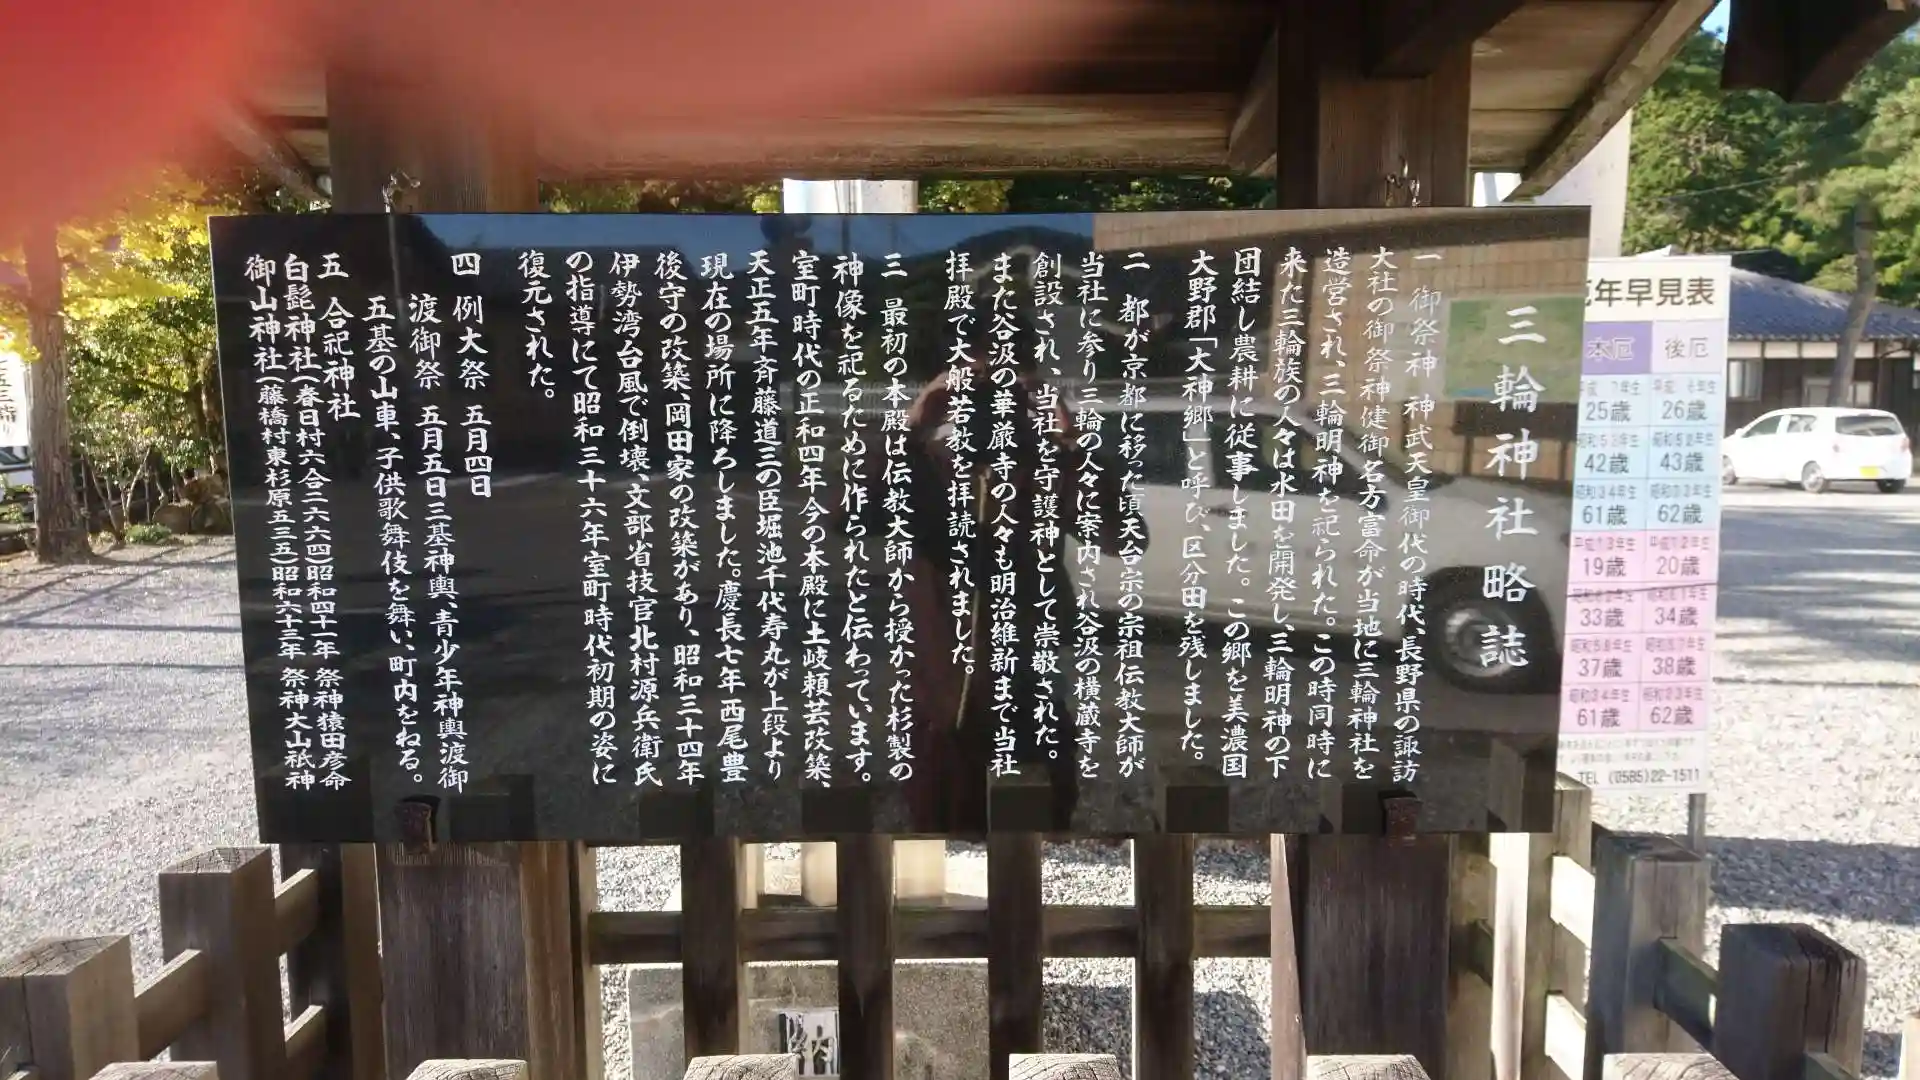 三輪神社略誌
一 御祭神 神武天皇御代の時代、長野県の諏訪
大社の御祭神健御名方富命が当地に三輪神社を
造営され、三輪明神を祀られた。この時同時に
来た三輪族の人々は水田を開発し、三輪明神の下
団結し農耕に従事しました。この郷を美濃国
大野郡「大神郷」と呼び、区分田を残しました。
二 都が京都に移った頃、天台宗の宗祖伝教大師が
当社に参り三輪の人々に案内され谷汲の横蔵寺を
創設され、当社を守護神として崇敬された。
また谷汲の華厳寺の人々も明治維新まで当社
拝殿で大般若教を拝読されました。
三 最初の本殿は伝教大師から授かった杉製の
神像を祀るために作られたと伝わっています。
室町時代の正和四年今の本殿に土岐頼芸改築、
天正五年斉藤道三の臣堀池千代寿丸が上段より
現在の場所に降ろしました。慶長七年西尾豊
後守の改築、岡田家の改築があり、昭和三十四年
伊勢湾台風で倒壊、文部省技官北村源兵衛氏
の指導にて昭和三十六年室町時代初期の姿に
復元された。
四 例大祭 五月四日
渡御祭 五月五日三基神輿、青少年神輿渡御
五基の山車、子供歌舞伎を舞い、町内をねる。
五 合祀神社
白髭神社(春日村六合二六六四)昭和四十一年 祭神猿田彦命
御山神社(藤橋村東杉原五三五)昭和六十三年 祭神大山祇神
年早見表
本厄 後厄
25歳 26歳
42歳 43歳
61歳 62歳
19歳 20歳
33歳 34歳
37歳 38歳
61歳 62歳
TEL (0585)22-1511